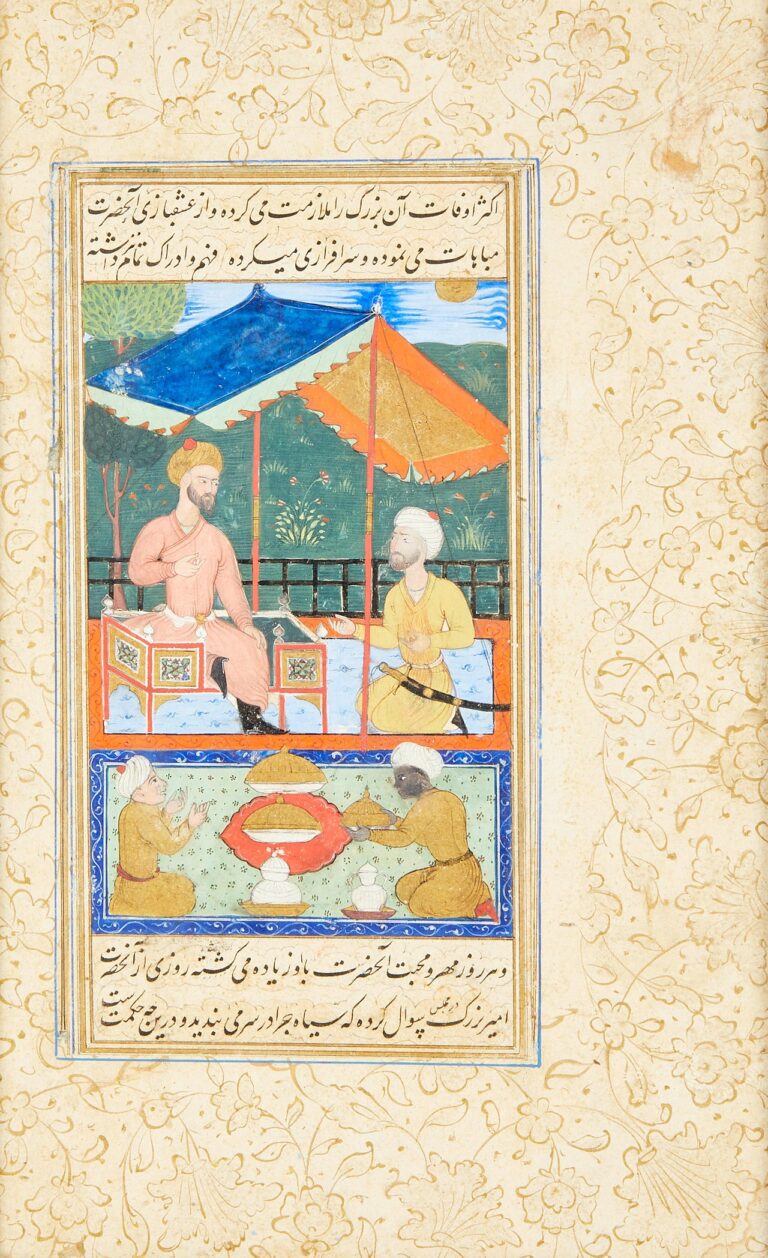 اکثر اوقات آن بزرگ را ملازمت می کرده و از عشقبازی آنحضرت
مباهات می نموده و سرافرازی میکرده فهم و ادراک تمام داشته
و هر روز مهر و محبت آنحضرت با او زیاده می گشته روزی از آنحضرت
امیر بزرگ سوال کرده که سیاه چرا در سر می بندید و درین چه حکمت است